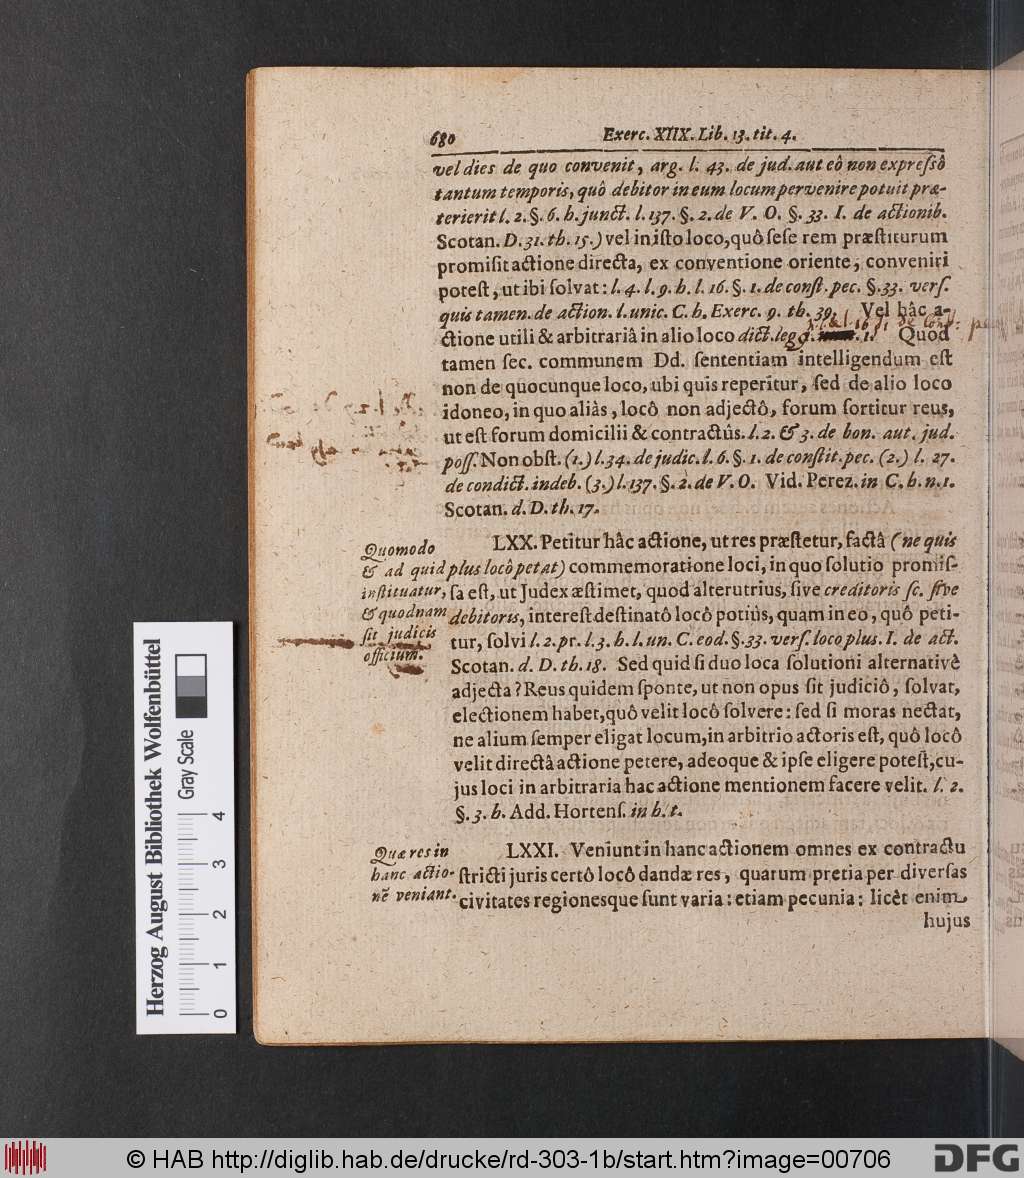 680 Exerc. XIIX. Lib. 13. tit. 4.
vel dies de quo convenit, arg. l. 43. de jud. aut eô non expreſsô
tantum temporis, quô debitor in eum locum pervenire potuit præ-
terierit l. 2. §. 6. h. junct. l. 137. §. 2. de V. O. §. 33. I. de actionib.
Scotan. D. 31. th. 15.) vel in iſto loco, quô ſeſe rem præſtiturum
promiſit actione directa, ex conventione oriente, conveniri
poteſt, ut ibi ſolvat: l. 4. l. 9. h. l. 16. §. 1. de conſt. pec. §. 33. verſ.
quis tamen. de action. l. unic. C. h. Exerc. 9. th. 39. Vel hâc a-
ctione utili & arbitrariâ in alio loco dict. legg. 1. Quod
& l. 16 §1 de conſt. pec
tamen ſec. communem Dd. ſententiam intelligendum eſt
non de quocunque loco, ubi quis reperitur, ſed de alio loco
idoneo, in quo aliàs, locô non adjectô, forum ſortitur reus,
ut eſt forum domicilii & contractûs. l. 2. & 3. de bon. aut. jud.
poſſ. Non obſt. (1.) l. 34. de judic. l. 6. §. 1. de conſtit. pec. (2.) l. 27.
de condict. indeb. (3.) l. 137. §. 2. de V. O. Vid. Perez. in C. h. n. 1.
Scotan. d. D. th. 17.
Quomodo
& ad quid
inſtituatur,
& quodnam
ſit judicis
officium.
LXX. Petitur hâc actione, ut res præſtetur, factâ (ne quis
plus locô petat) commemoratione loci, in quo ſolutio promiſ-
ſa eſt, ut Judex æſtimet, quod alterutrius, ſive creditoris ſc. ſive
debitoris, intereſt deſtinatô locô potiùs, quam in eo, quô peti-
tur, ſolvi l. 2. pr. l. 3. h. l. un. C. eod. §. 33. verſ. loco plus. I. de act.
Scotan. d. D. th. 18. Sed quid ſi duo loca ſolutioni alternativè
adjecta? Reus quidem ſponte, ut non opus ſit judiciô, ſolvat,
electionem habet, quô velit locô ſolvere: ſed ſi moras nectat,
ne alium ſemper eligat locum, in arbitrio actoris eſt, quô locô
velit directâ actione petere, adeoque & ipſe eligere poteſt, cu-
jus loci in arbitraria hac actione mentionem facere velit. l. 2.
§. 3. h. Add. Hortenſ. in h. t.
Quæ res in
hanc actio-
nē veniant.
LXXI. Veniunt in hanc actionem omnes ex contractu
ſtricti juris certô locô dandæ res, quarum pretia per diverſas
civitates regionesque ſunt varia: etiam pecunia: licèt enim
hujus
Herzog August Bibliothek Wolfenbüttel
Gray Scale
0 1 2 3 4
© HAB http://diglib.hab.de/drucke/rd-303-1b/start.htm?image=00706
DFG